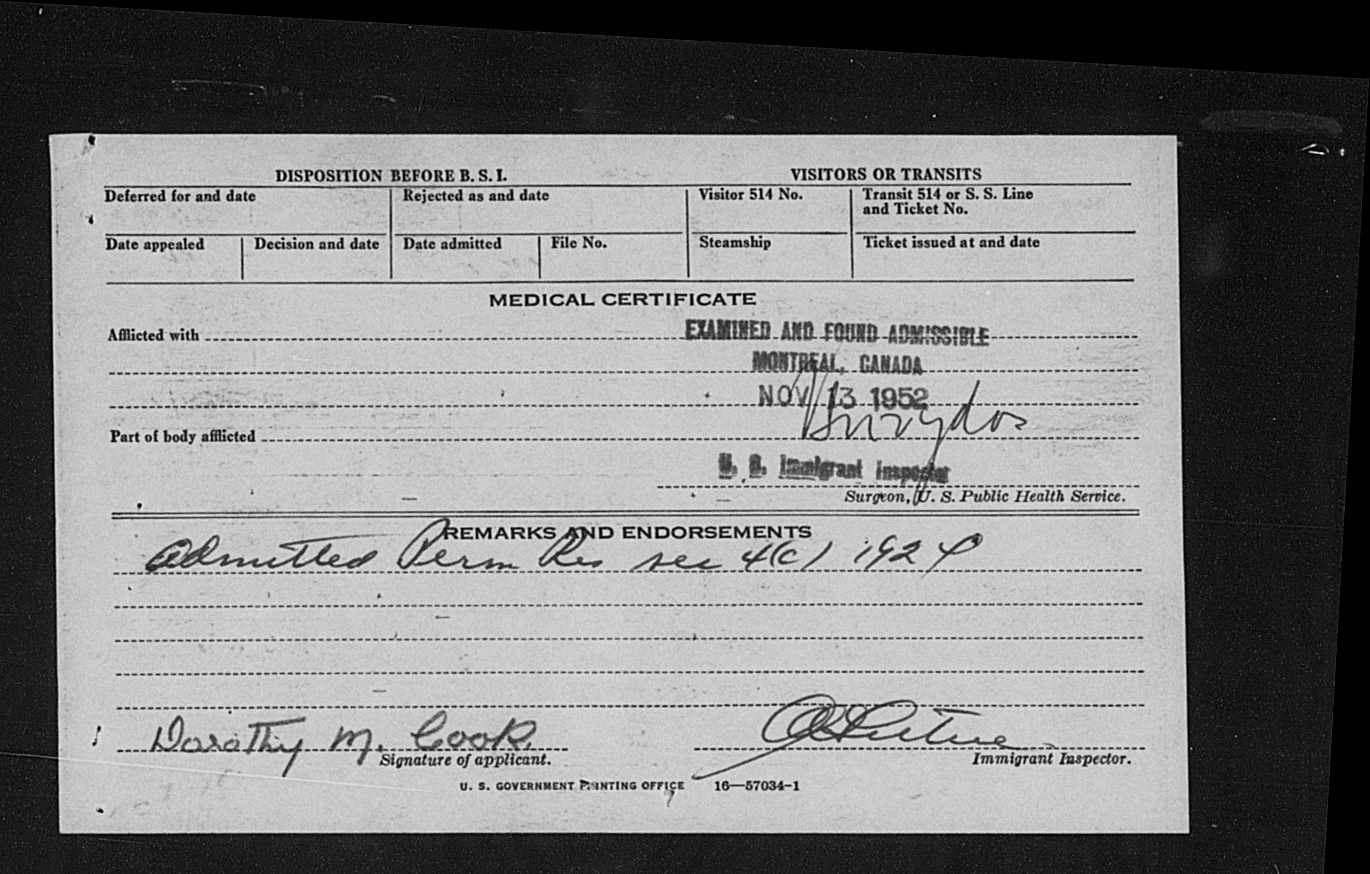 DISPOSITION BEFORE B. S. I.
VISITORS OR TRANSITS
Deferred for and date
Rejected as and date
Visitor 514 No.
Transit 514 or S. S. Line
and Ticket No.
Date appealed
Decision and date
Date admitted
File No.
Steamship
Ticket issued at and date
MEDICAL CERTIFICATE
Afflicted with
EXAMINED AND FOUND ADMISSIBLE
MONTREAL, CANADA
NOV 13 1952
Part of body afflicted
U. S. Immigrant Inspector
Surgeon, U. S. Public Health Service.
REMARKS AND ENDORSEMENTS
Admitted Perm Res sec 4(c) 1924
Dorothy M. Cook
Signature of applicant.
Immigrant Inspector.
U. S. GOVERNMENT PRINTING OFFICE 16—57034-1